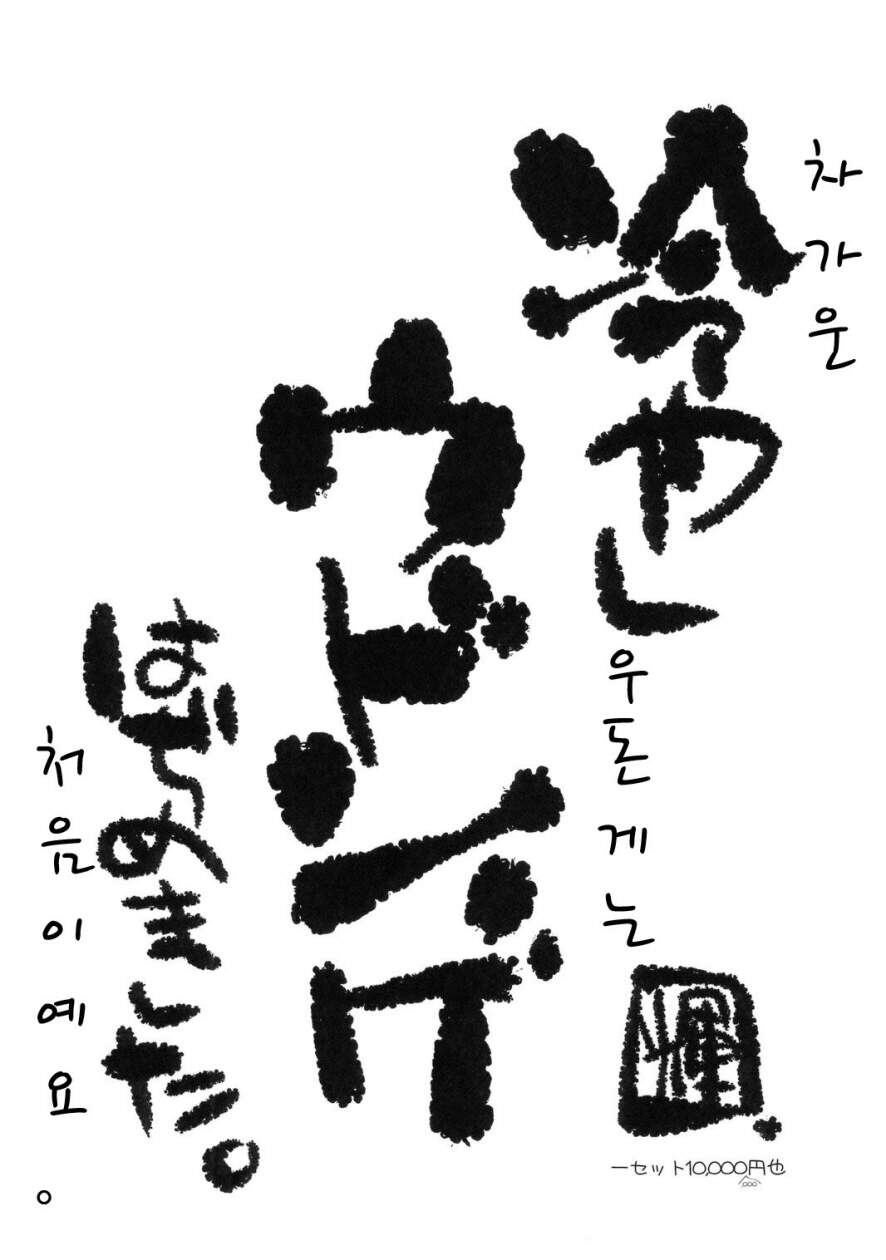 차가운
冷やし
우돈게는
輝
一セット10,000円也
000
ウドンゲ
はじめました。
처음이예요。